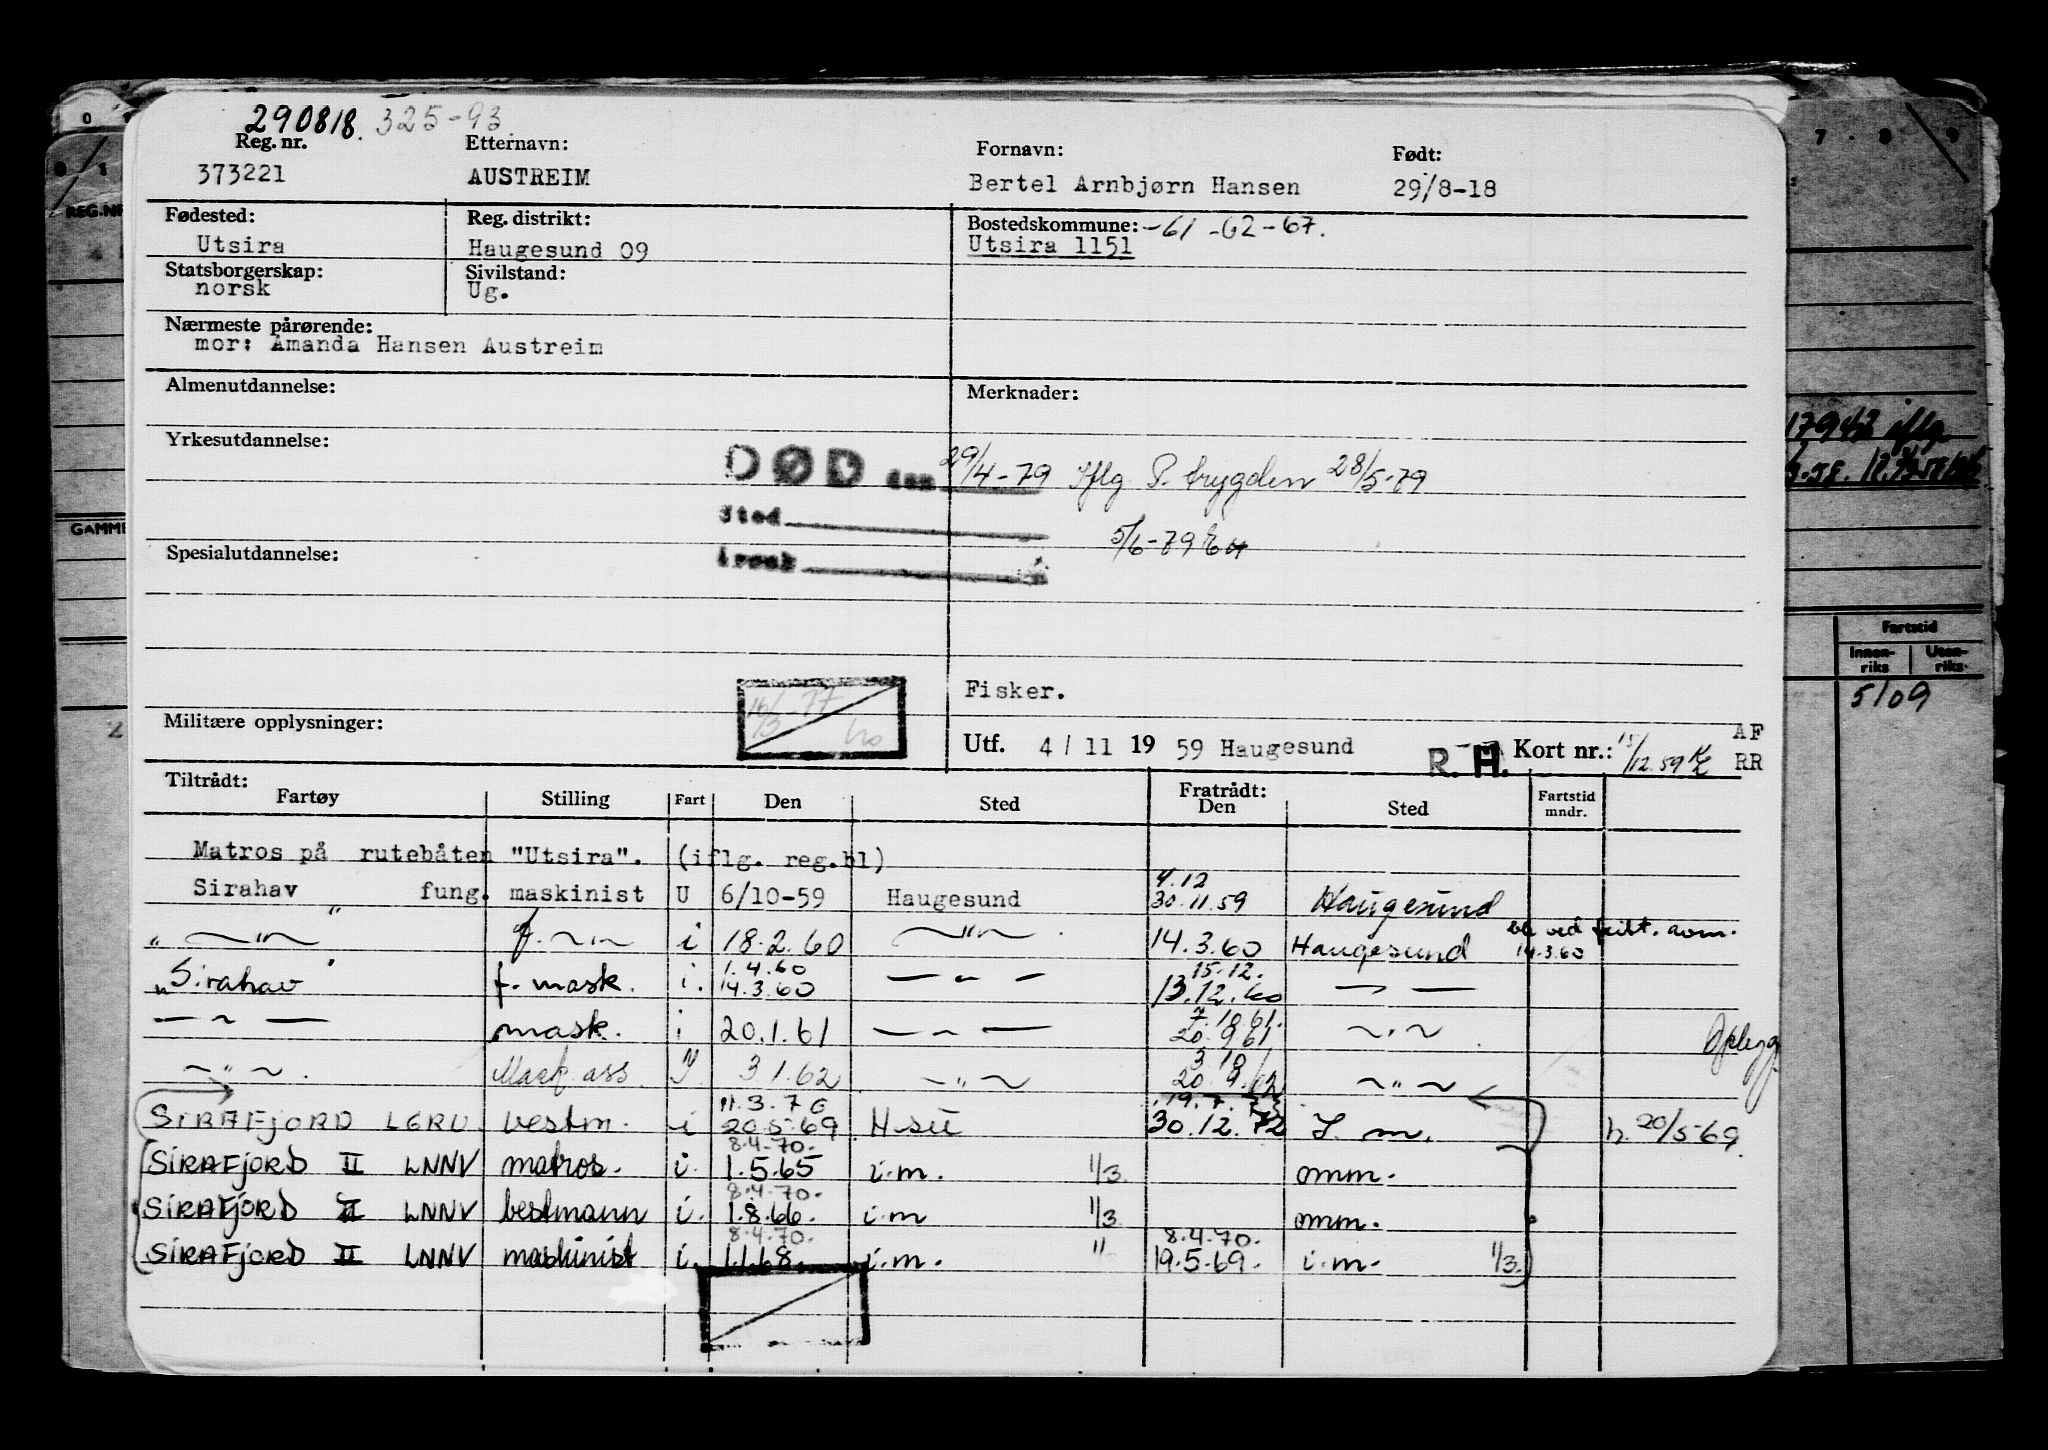 290818. 325-93
Reg. nr. Etternavn: Fornavn: Født:
373221 AUSTREIM Bertel Arnbjørn Hansen 29/8-18
Fødested: Reg. distrikt: Bostedskommune: -61 -62-67.
Utsira Haugesund 09 Utsira 1151
Statsborgerskap: Sivilstand:
norsk Ug.
Nærmeste pårørende:
mor: Amanda Hansen Austreim
Almenutdannelse: Merknader:
Yrkesutdannelse:
DØD den 29/4-79 Iflg P. trygden 28/5-79
Sted
5/6-79
Spesialutdannelse:
Fisker.
Militære opplysninger:
Utf. 4/11 1959 Haugesund R. H. Kort nr.: 15/12.59 AF
RR
Tiltrådt: Fratrådt:
Fartøy Stilling Fart Den Sted Den Sted Fartstid mndr.
Matros på rutebåten "Utsira". (iflg. reg.bl)
4.12
Sirahav fung. maskinist U 6/10-59 Haugesund 30.11.59 Haugesund
" —"— f. —"— i 18.2.60 —"— 14.3.60 Haugesund 14.3.60
1.4.60 15.12.
"Sirahav" f. mask. i. 14.3.60 — " — 13.12.60 — —
7.10.61.
— " — mask. i 20.1.61 — " — 20.9.61 — " —
3.10
— " —. Mask ass. 3 1.62 — " — 20.9.62 — " —
11.3.70 19.7.
SIRAFJORD LGRU. bestm. i 20.5.69 H.su 30.12.72 I. m. h. 20/5-69.
8.4.70.
SIRAFJORD II LNNV matros. i. 1.5.65 i.m. 1/3 omm.
8.4.70.
SIRAFJORD II LNNV bestmann i. 1.8.66. i.m 1/3 omm.
8.4.70. 8.4.70.
SIRAFJORD II LNNV maskinist i. 1.1.68. i.m. 19.5.69. i.m. 1/3.
REG.NR
GAMME
7 8 9
17942 iflg
Fartstid
Innen-
riks
Uten-
riks
5/09